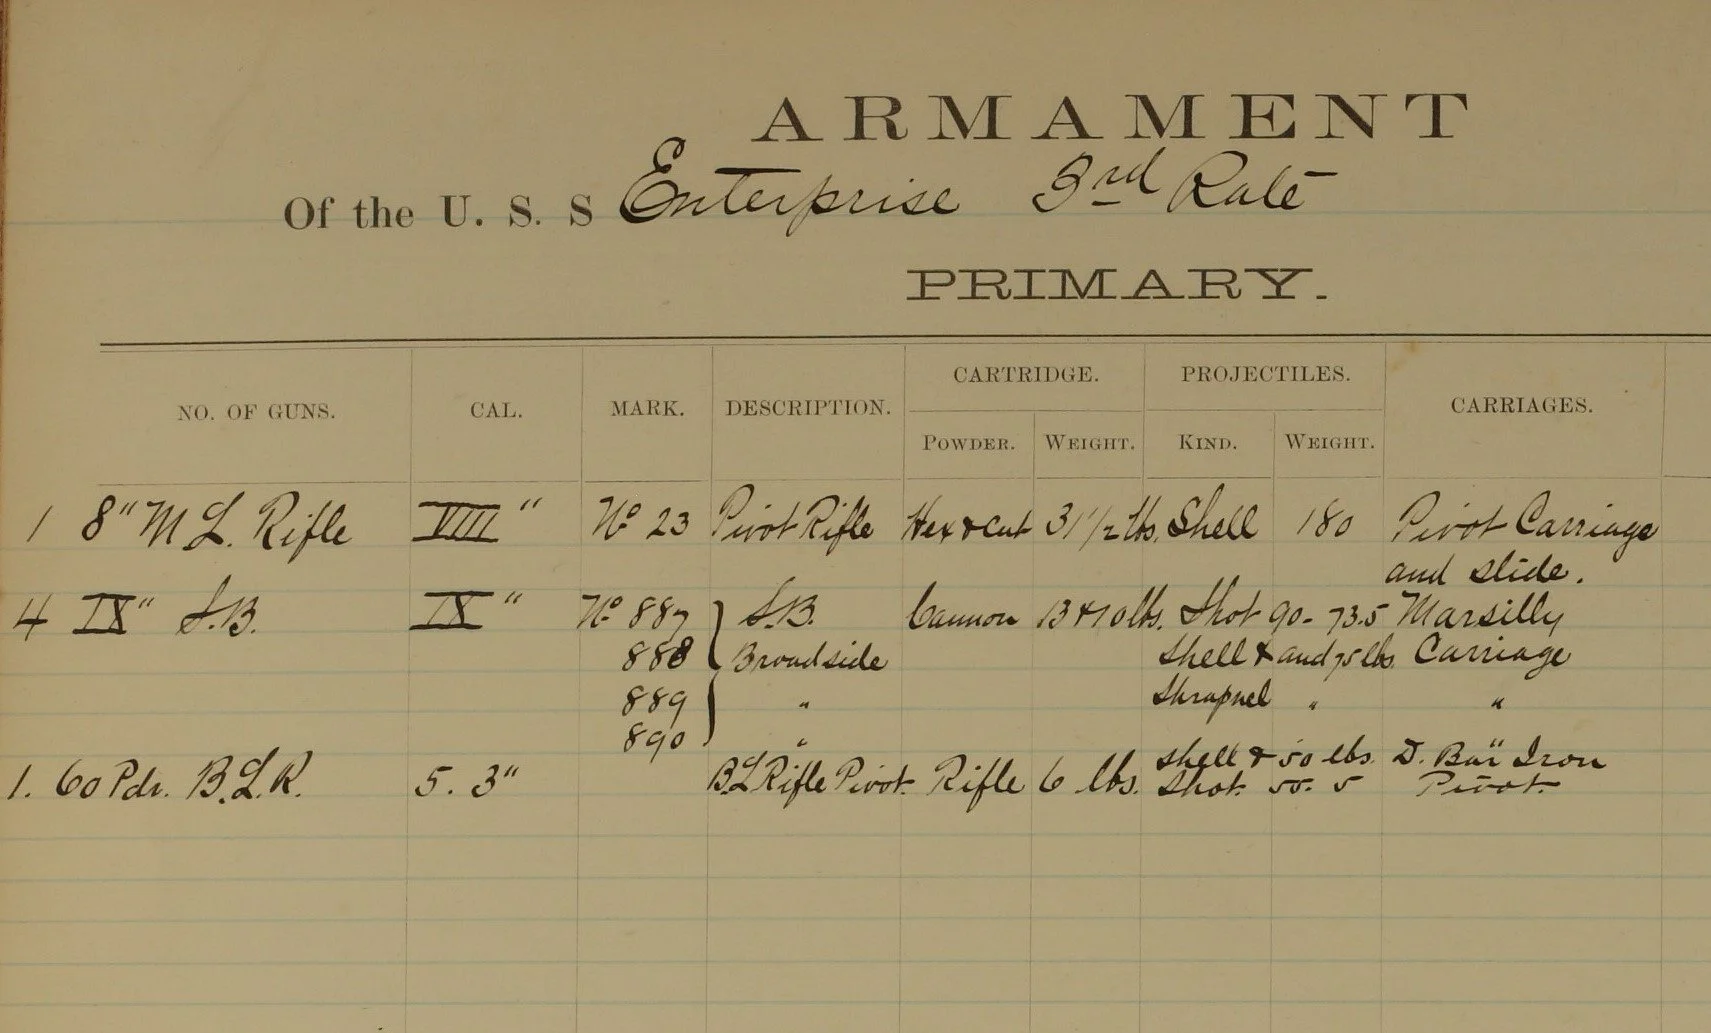 ARMAMENT
Of the U. S. S Enterprise 3rd Rate
PRIMARY.
NO. OF GUNS. CAL. MARK. DESCRIPTION. CARTRIDGE. PROJECTILES. CARRIAGES.
POWDER. WEIGHT. KIND. WEIGHT.
1 8" M L. Rifle VIII" No 23 Pivot Rifle Hex & Cut 31 1/2 lbs. Shell 180 Pivot Carriage
and slide.
4 IX" S.B. IX" No 887 S.B. Cannon 13 & 10 lbs. Shot 90 - 73.5 Marsilly
888 Broadside Shell & and 75 lbs. Carriage
889 " Shrapnel " "
890 "
1. 60 Pdr. B.L.R. 5.3" B.L Rifle Pivot. Rifle 6 lbs. Shell & 50 lbs. D. Bar Iron
Shot. 55. 5 Pivot.